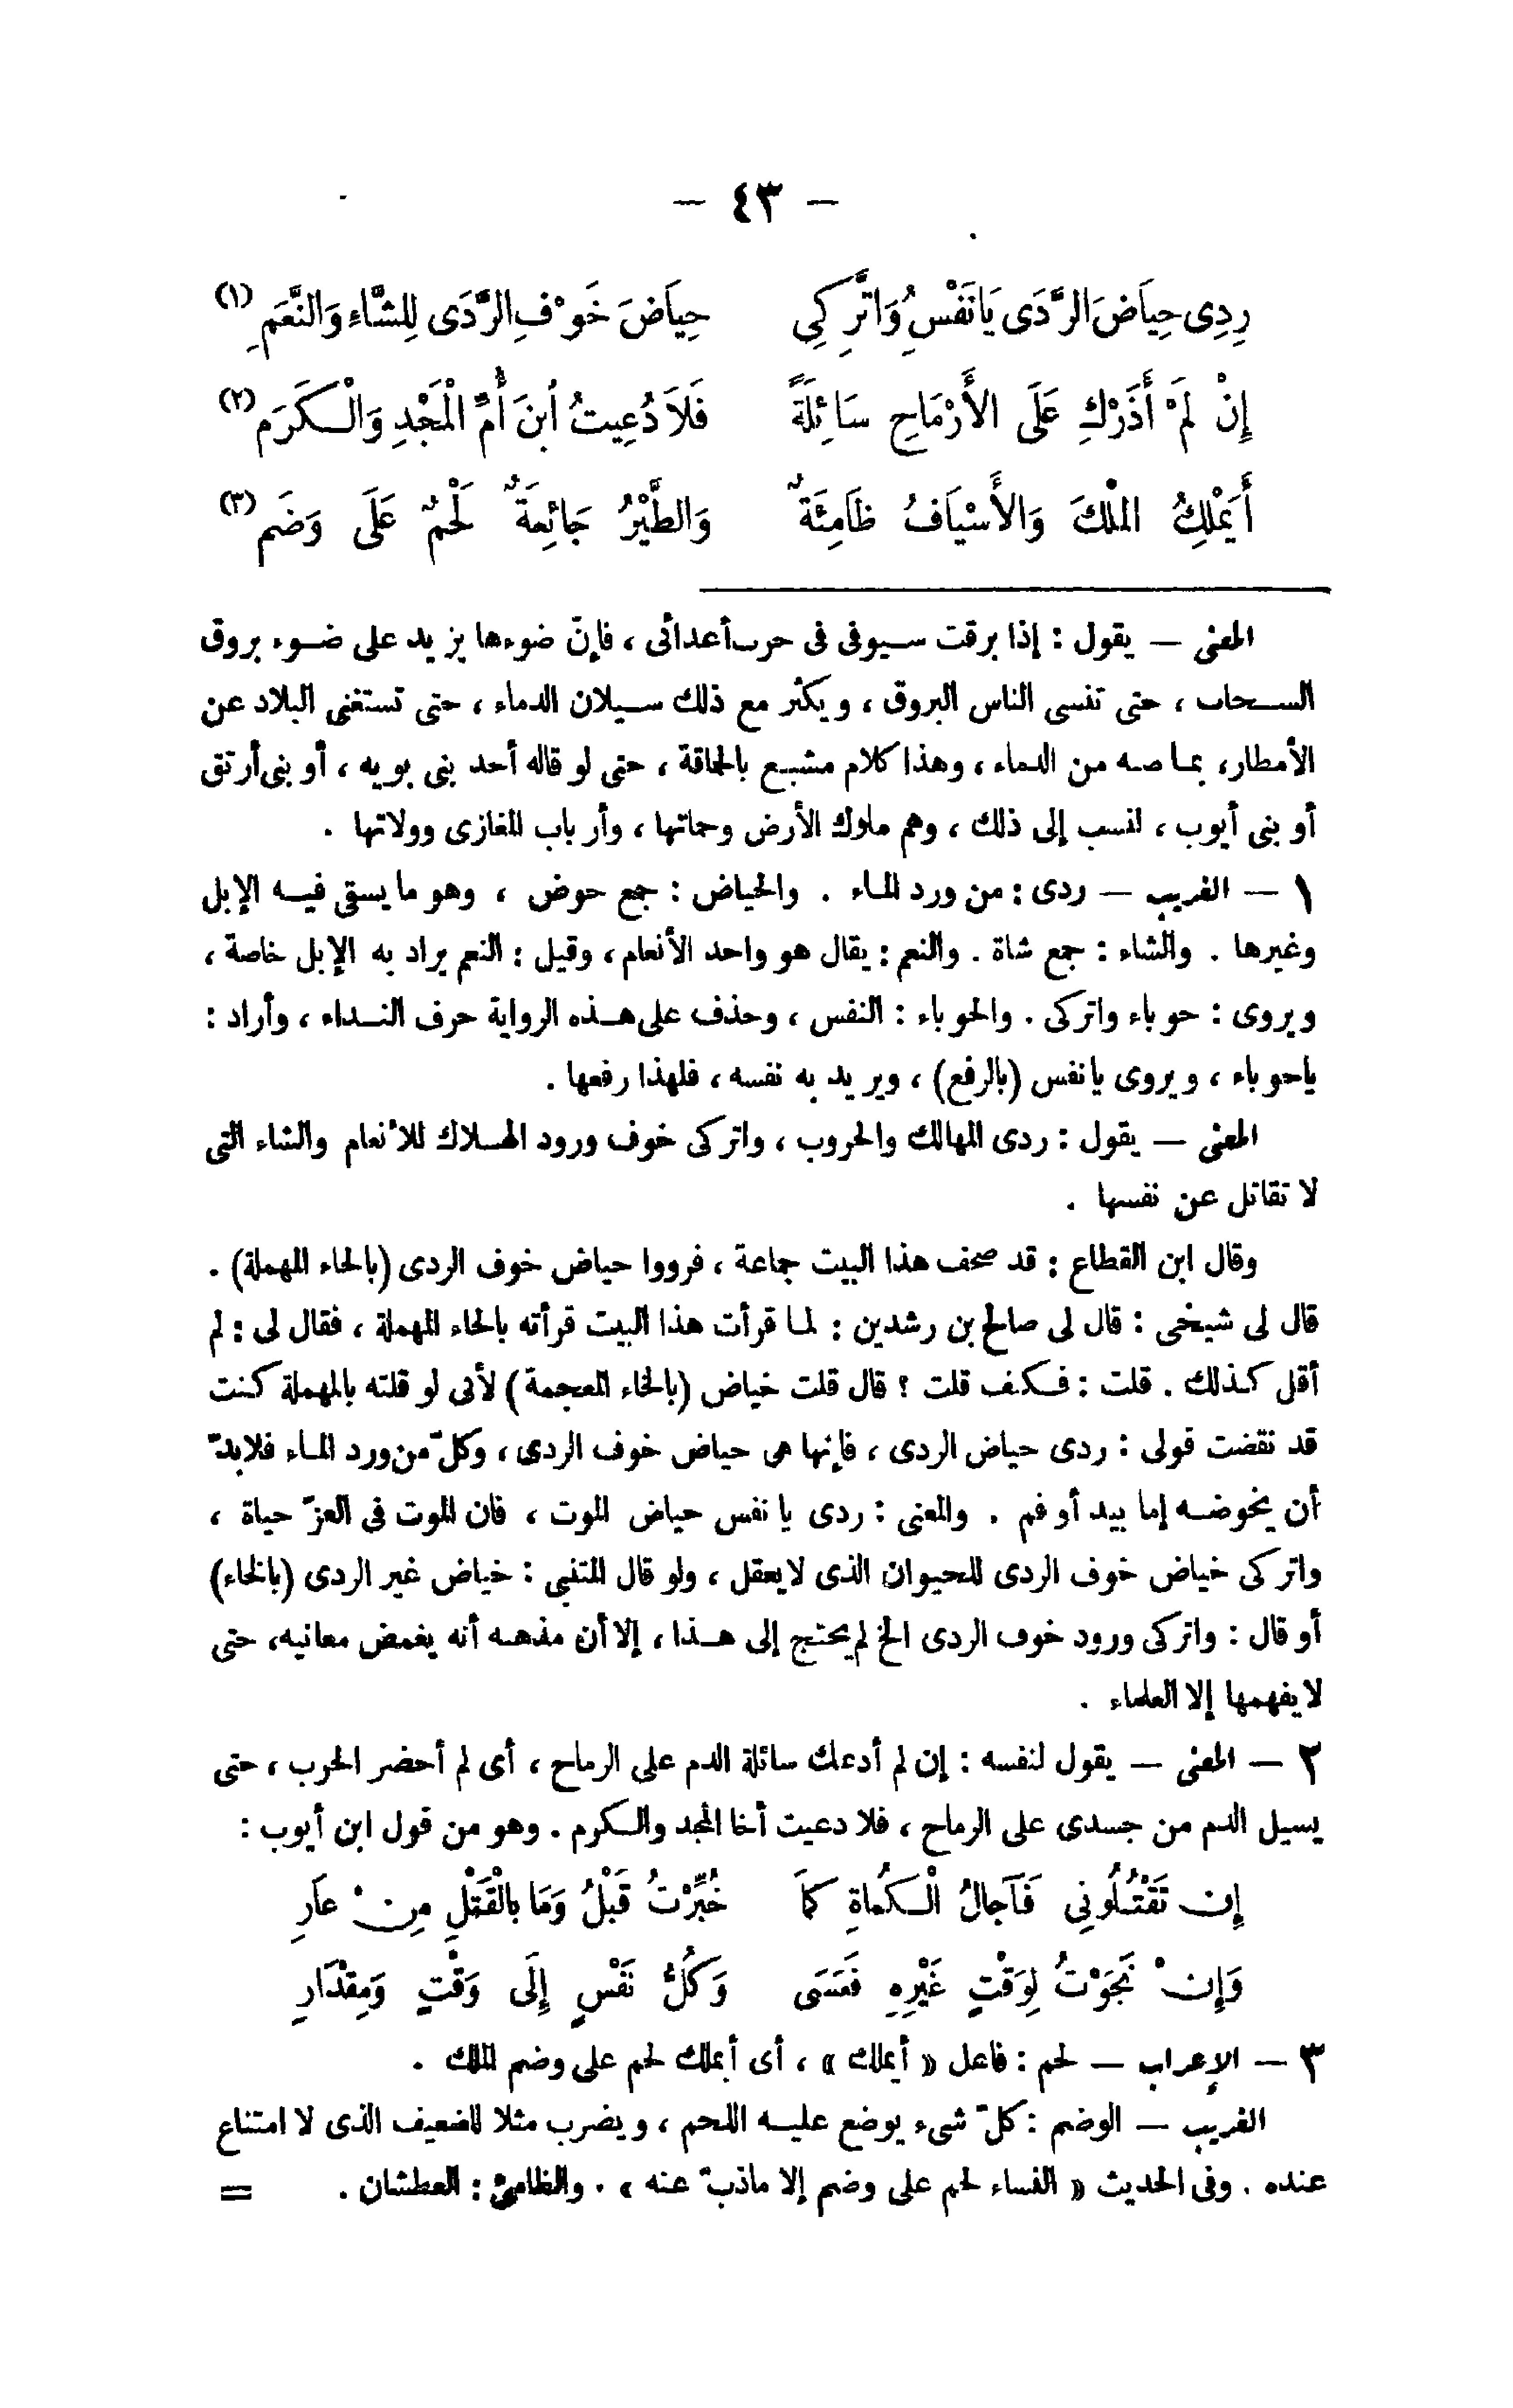 — ٤٣ —
رِدِى حِيَاضَ الرَّدَى يَا نَفْسِ وَاتَّرِكِى حِيَاضَ خَوْفِ الرَّدَى لِلشَّاءِ وَالنَّعَمِ (١)
إِنْ لَمْ أَذَرْكِ عَلَى الأَرْمَاحِ سَائِلَةً فَلاَ دُعِيتُ ابْنَ أُمِّ الْمَجْدِ وَالْكَرَمِ (٢)
أَيَمْلِكُ الْمُلْكَ وَالأَسْيَافُ ظَامِئَةٌ وَالطَّيْرُ جَائِعَةٌ لَحْمٌ عَلَى وَضَمِ (٣)
المعنى — يقول : إذا برقت سيوفى فى حرب أعدائى ، فإنّ ضوءها يزيد على ضوء بروق
السحاب ، حتى تنسى الناس البروق ، ويكثر مع ذلك سيلان الدماء ، حتى تستغنى البلاد عن
الأمطار، بما صبه من الدماء ، وهذا كلام مشبع بالحماقة ، حتى لو قاله أحد بنى بويه ، أو بنى أرتق
أو بنى أيوب ، لنسب إلى ذلك ، وهم ملوك الأرض وحماتها ، وأرباب المغازى وولاتها .
١ — الغريب — ردى : من ورد الماء . والحياض : جمع حوض ، وهو ما يستقى فيه الإبل
وغيرها . والشاء : جمع شاة . والنعم : يقال هو واحد الأنعام ، وقيل : النعم يراد به الإبل خاصة ،
ويروى : حوباء واتركى . والحوباء : النفس ، وحذف على هذه الرواية حرف النداء ، وأراد :
ياحوباء ، ويروى يا نفس (بالرفع) ، ويريد به نفسه ، فلهذا رفعها .
المعنى — يقول : ردى المهالك والحروب ، واتركى خوف ورود الهلاك للأنعام والشاء التى
لا تقاتل عن نفسها .
وقال ابن القطاع : قد صحف هذا البيت جماعة ، فرووا حياض خوف الردى (بالحاء المهملة) .
قال لى شيخى : قال لى صالح بن رشدين : لما قرأت هذا البيت قرأته بالحاء المهملة ، فقال لى : لم
أقل كذلك . قلت : فكيف قلت ؟ قال قلت خياض (بالخاء المعجمة) لأنى لو قلته بالمهملة كنت
قد نقضت قولى : ردى حياض الردى ، فإنها هى حياض خوف الردى ، وكلّ من ورد الماء فلا بدّ
أن يخوضه إما بيد أو فم . والمعنى : ردى يا نفس حياض الموت ، فان الموت فى العزّ حياة ،
واتركى خياض خوف الردى للحيوان الذى لا يعقل ، ولو قال المتنبى : خياض غير الردى (بالخاء)
أو قال : واتركى ورود خوف الردى الخ لم يحتج إلى هذا ، إلا أن مذهبه أنه يغمض معانيه، حتى
لا يفهمها إلا العلماء .
٢ — المعنى — يقول لنفسه : إن لم أدعك سائلة الدم على الرماح ، أى لم أحضر الحرب ، حتى
يسيل الدم من جسدى على الرماح ، فلا دعيت أخا المجد والكرم . وهو من قول ابن أيوب :
إِن تَقْتُلُونِى فَآجَالُ الْكُمَاةِ كَمَا خُبِّرْتُ قَبْلُ وَمَا بِالْقَتْلِ مِنْ عَارِ
وَإِنْ نَجَوْتُ لِوَقْتٍ غَيْرِهِ فَعَسَى وَكُلُّ نَفْسٍ إِلَى وَقْتٍ وَمِقْدَارِ
٣ — الإعراب — لحم : فاعل « أيملك » ، أى أيملك لحم على وضم الملك .
الغريب — الوضم : كلّ شىء يوضع عليه اللحم ، ويضرب مثلا للضعيف الذى لا امتناع
عنده . وفى الحديث « النساء لحم على وضم إلا ماذبّ عنه » . والظامئ : العطشان . =